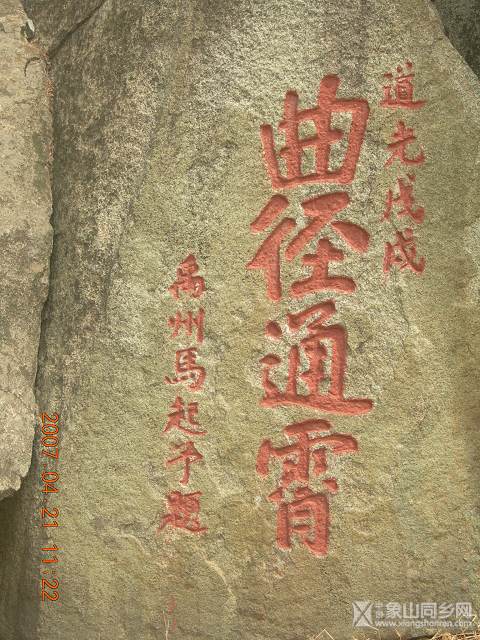 道光戊戌
曲径通霄
禹州馬起題
2007 04 21 11:22
象山同乡网
www.xiangshanren.com